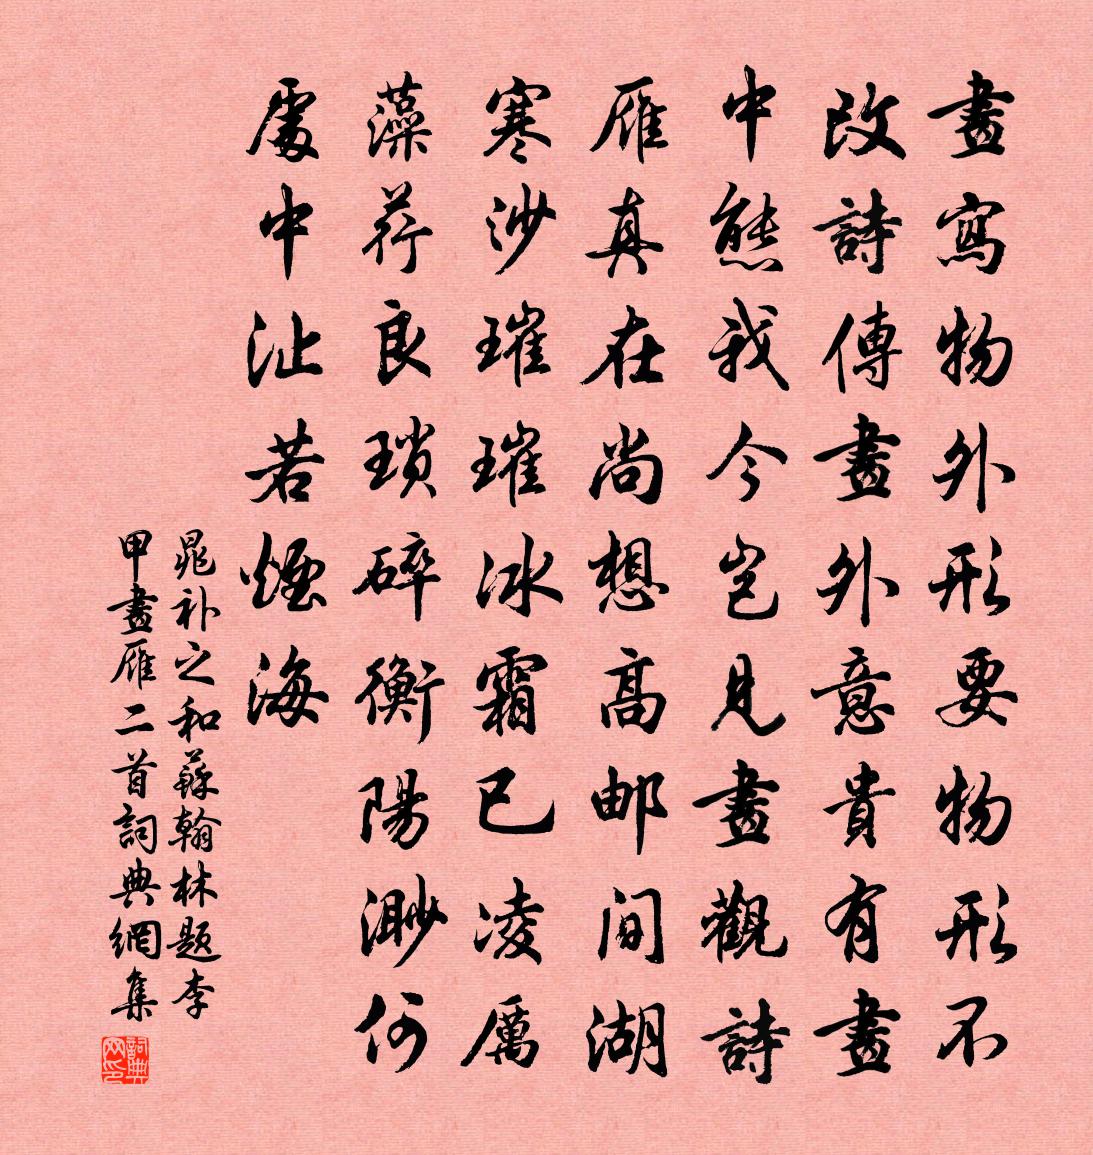 畫寫物外形要物形不
改詩傳畫外意貴有畫
中態我今豈見畫觀詩
雁真在尚想高郵間湖
寒沙璀璀冰霜已凌厲
藻荇良瑣碎衡陽渺何
處中沚若煙海
晁补之和蘇翰林題李
甲畫雁二首詞典網集
詞典网印